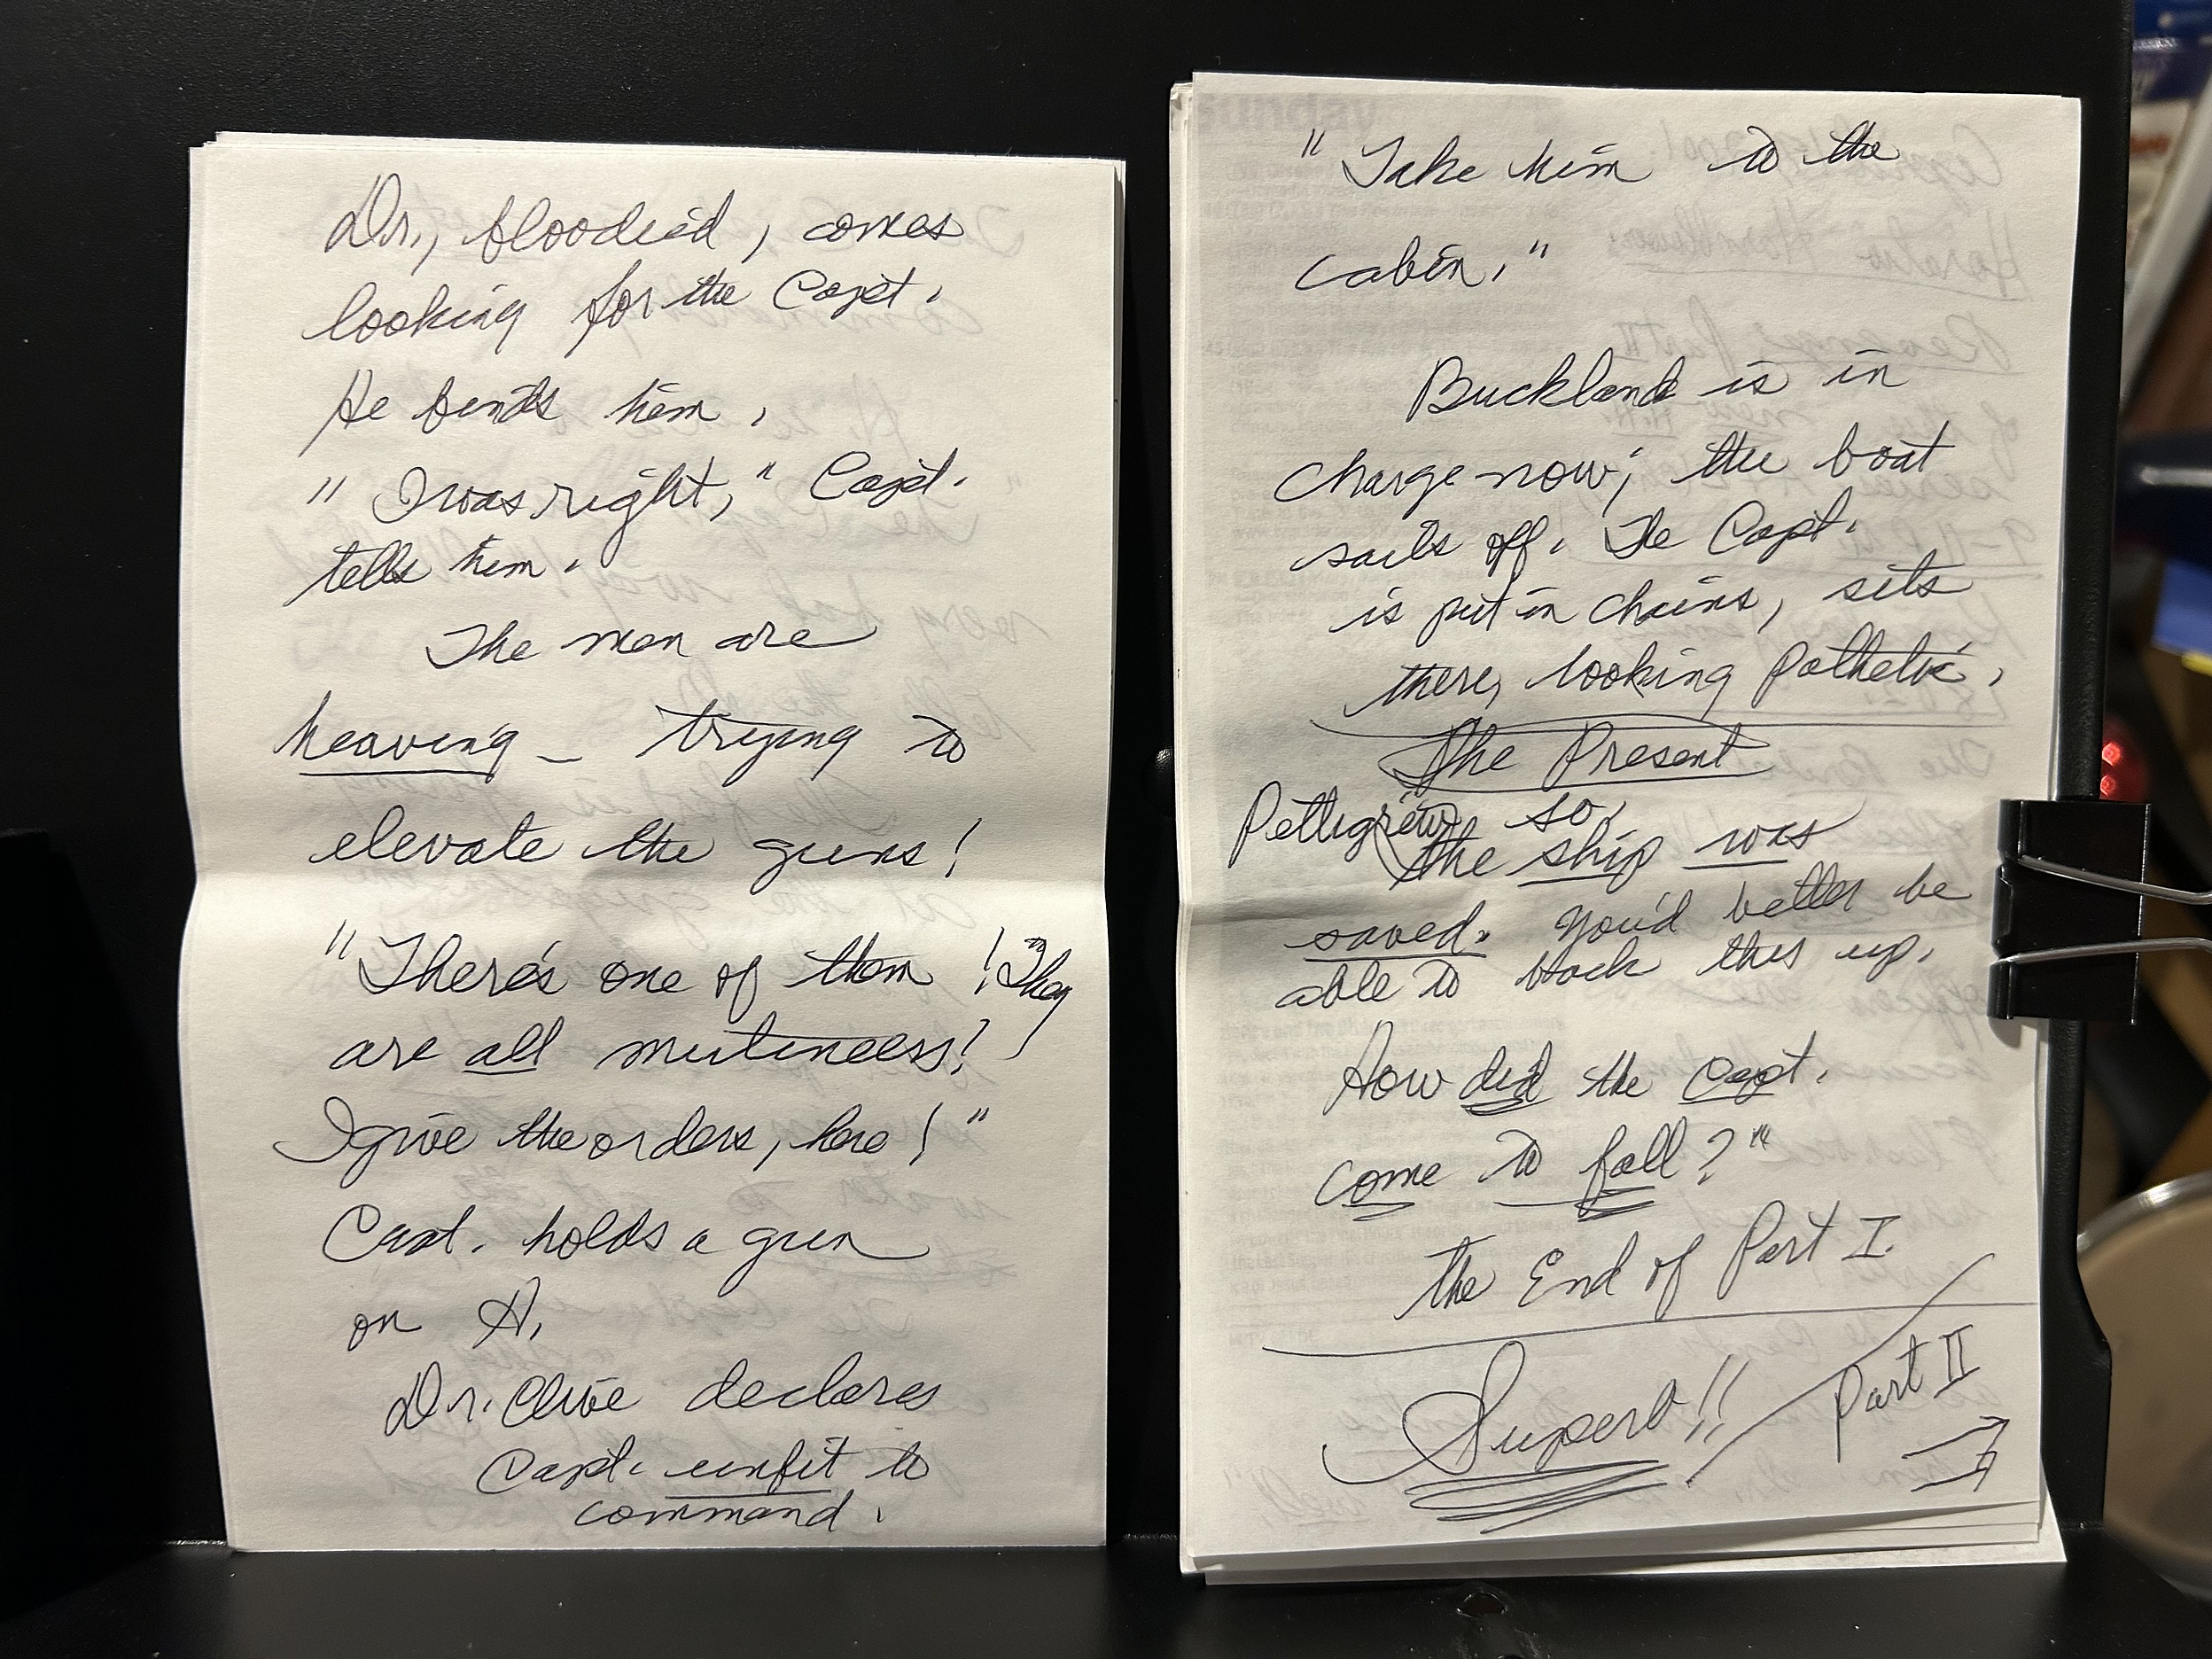 Dr., bloodied, comes
looking for the Capt.
He finds him.
"I was right," Capt.
tells him.
The men are
heaving – trying to
elevate the guns!
"There's one of them! They
are all mutineers!
I give the orders, here!"
Capt. holds a gun
on H.
Dr. Clive declares
Capt. unfit to
command.
"Take him to the
cabin."
Buckland is in
charge now; the boat
sails off. The Capt.
is put in chains, sits
there, looking pathetic.
The Present
Pettigrew so,
the ship was
saved. You'd better be
able to back this up.
How did the Capt.
come to fall?"
the End of Part I.
Superb!!
Part II